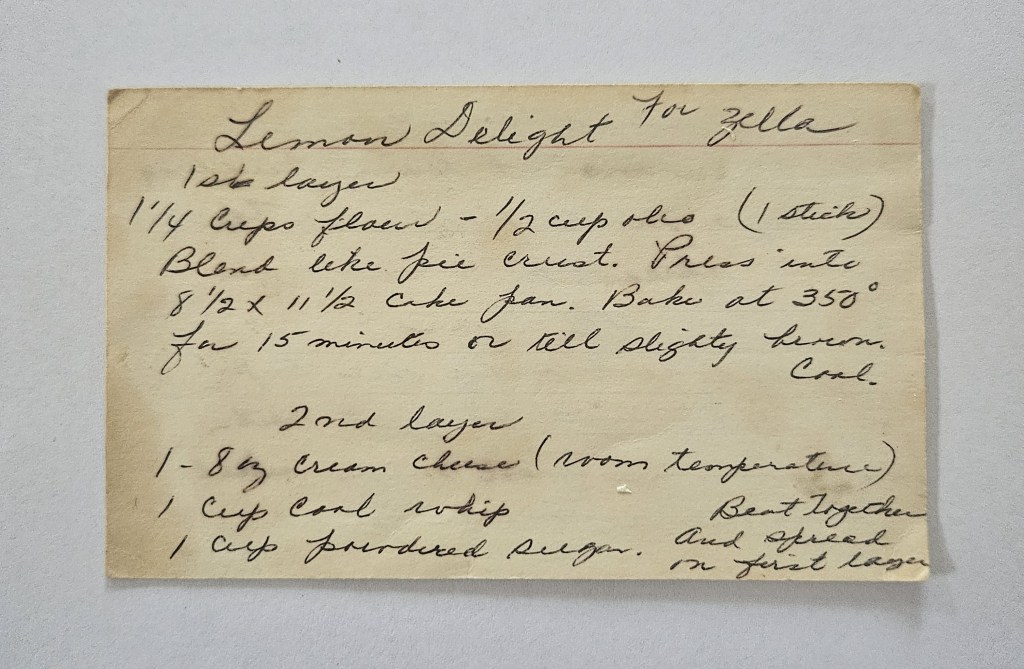 Lemon Delight For Zella
1st layer
1 1/4 Cups flour - 1/2 cup oleo (1 stick)
Blend like pie crust. Press into
8 1/2 x 11 1/2 cake pan. Bake at 350°
for 15 minutes or till slighty brown.
Cool.
2nd layer
1 - 8 oz cream cheese (room temperature)
1 Cup Cool whip
1 Cup powdered sugar.
Beat Together
And spread
on first layer